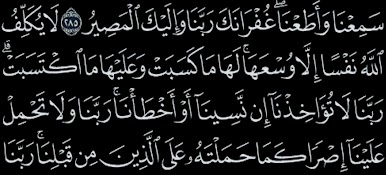 سَمِعْنَا وَأَطَعْنَا ۖ غُفْرَانَكَ رَبَّنَا وَإِلَيْكَ الْمَصِيرُ ٢٨٥ لَا يُكَلِّفُ
اللَّهُ نَفْسًا إِلَّا وُسْعَهَا ۚ لَهَا مَا كَسَبَتْ وَعَلَيْهَا مَا اكْتَسَبَتْ ۗ
رَبَّنَا لَا تُؤَاخِذْنَا إِن نَّسِينَا أَوْ أَخْطَأْنَا ۚ رَبَّنَا وَلَا تَحْمِلْ
عَلَيْنَا إِصْرًا كَمَا حَمَلْتَهُ عَلَى الَّذِينَ مِن قَبْلِنَا ۚ رَبَّنَا